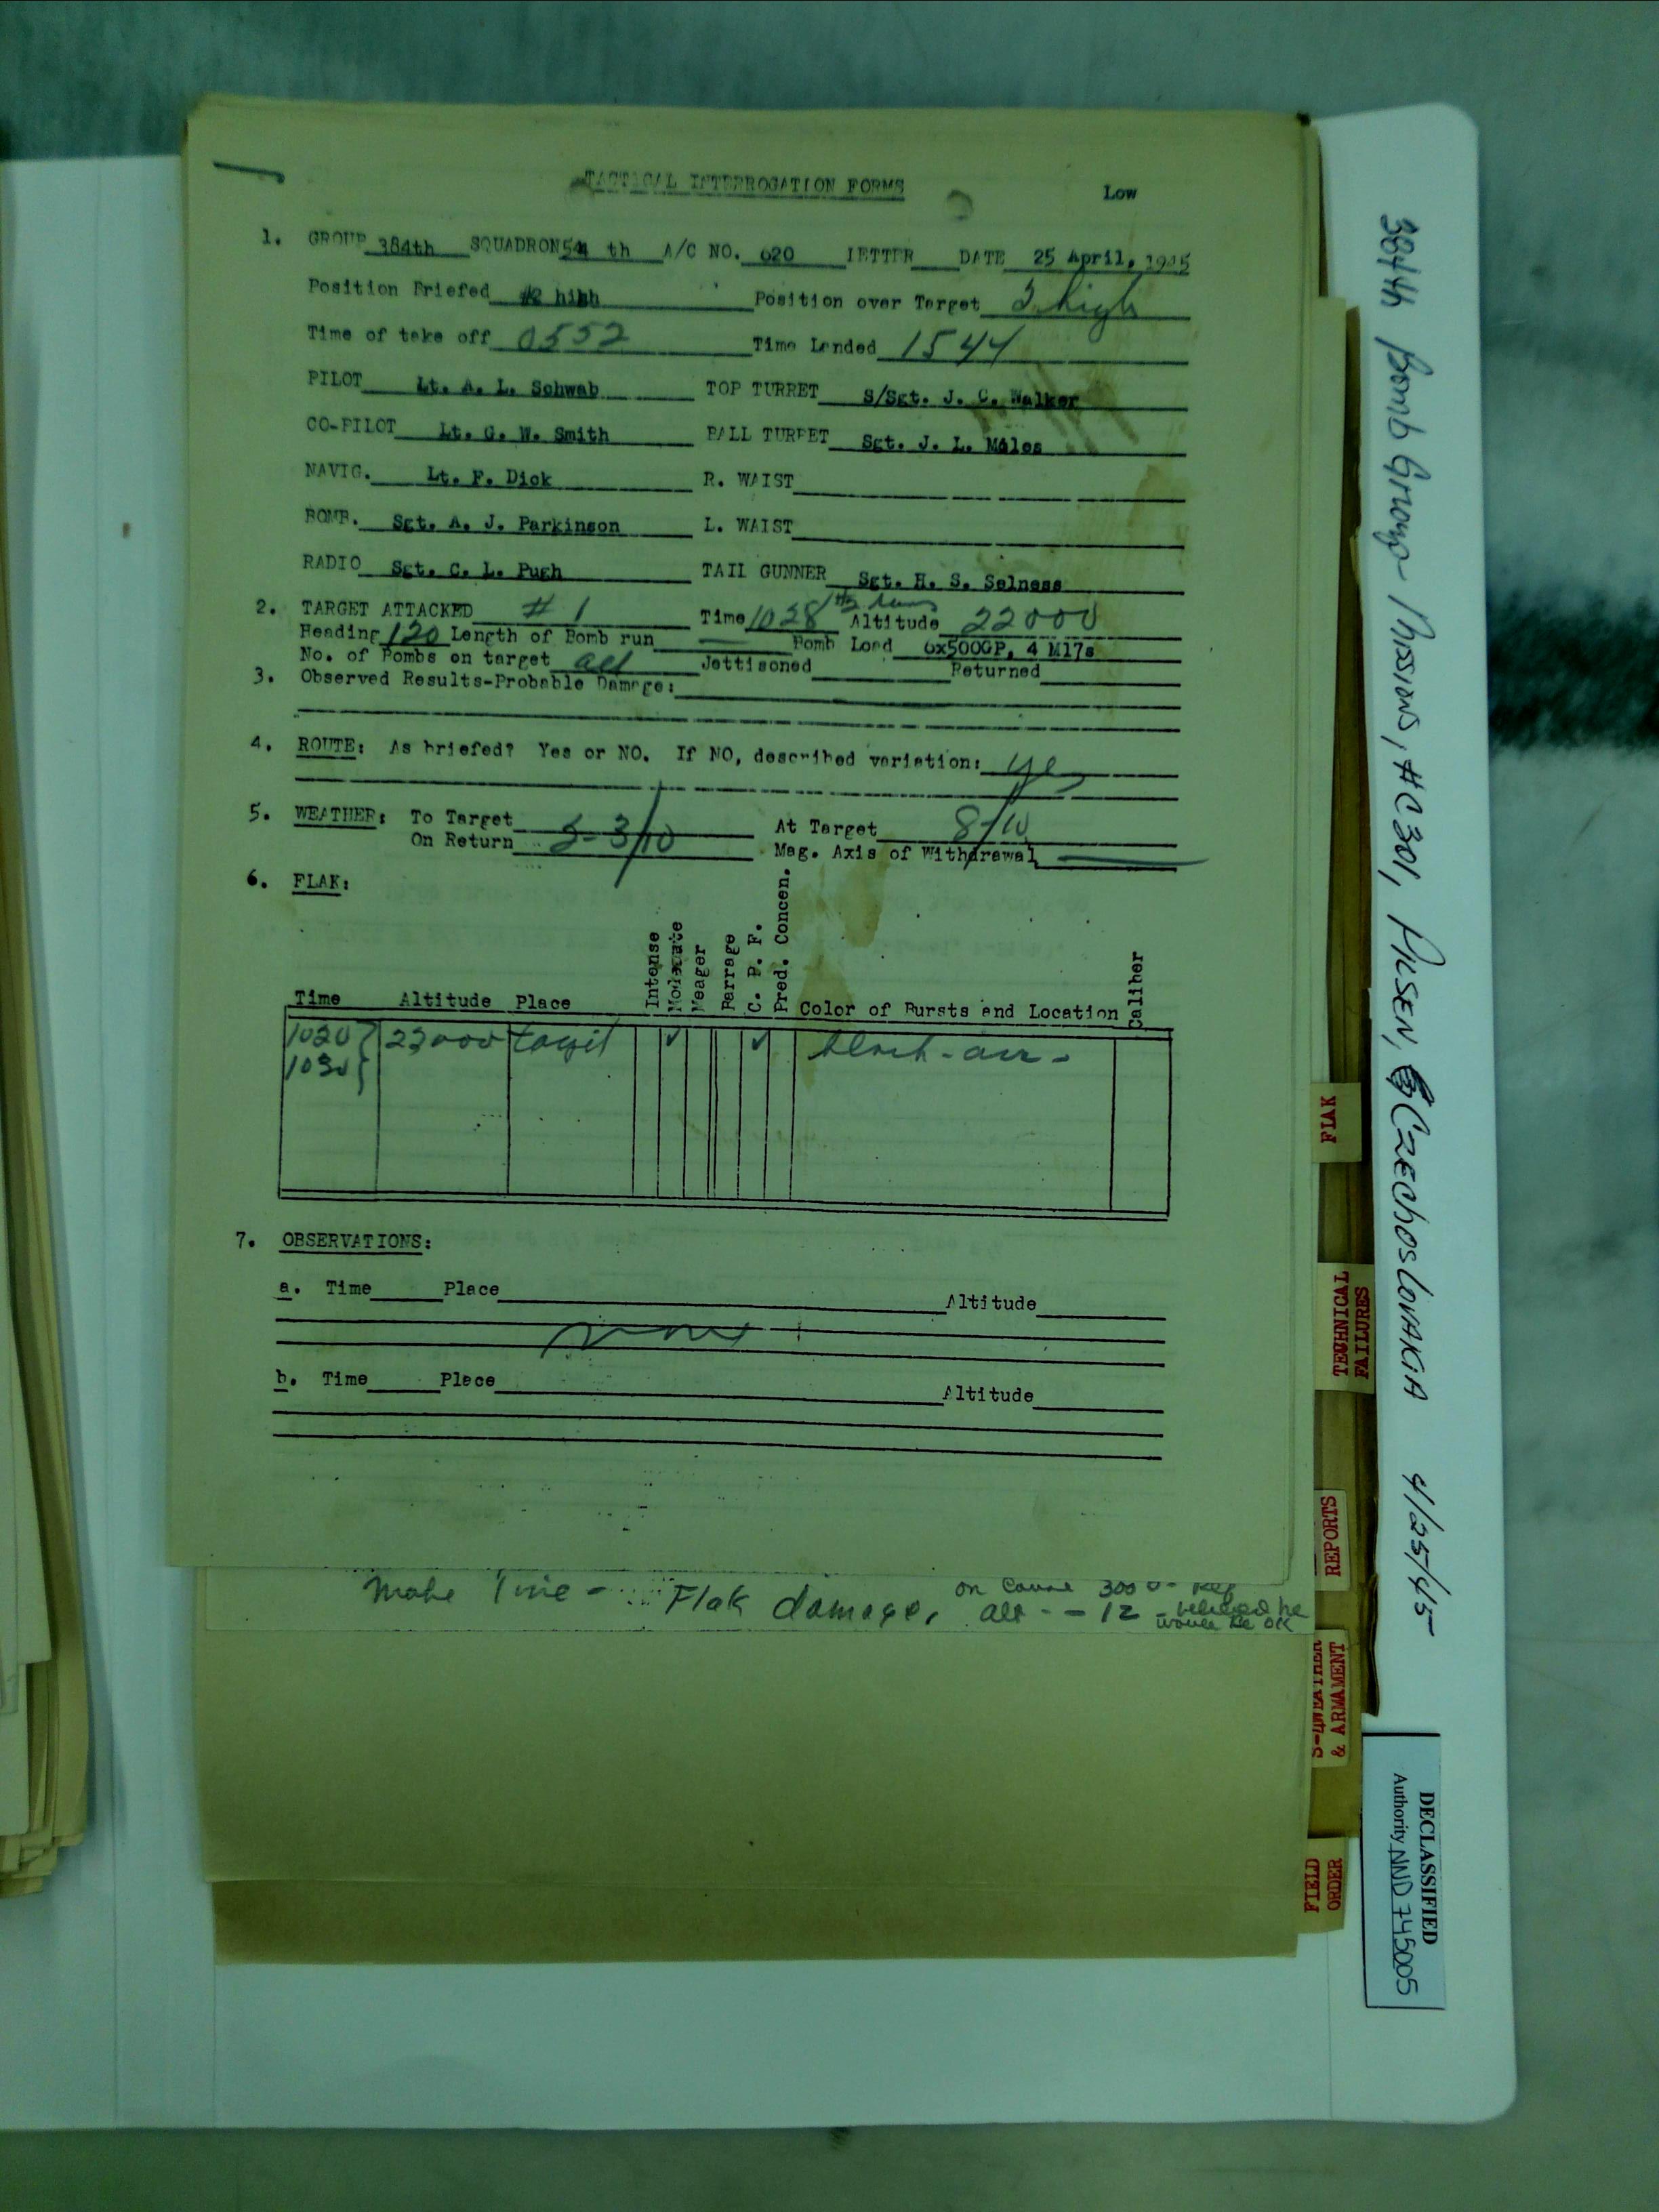 TACTICAL INTERROGATION FORMS
Low
1. GROUP 384th SQUADRON 544 th A/C NO. 620 LETTER DATE 25 April, 1945
Position Briefed #2 hihh Position over Target high
Time of take off 0552 Time Landed 1544
PILOT Lt. A. L. Schwab TOP TURRET S/Sgt. J. C. Walker
CO-PILOT Lt. G. W. Smith BALL TURRET Sgt. J. L. Miles
NAVIG. Lt. F. Dick R. WAIST
BOMB. Sgt. A. J. Parkinson L. WAIST
RADIO Sgt. C. L. Pugh TAIL GUNNER Sgt. H. S. Selness
2. TARGET ATTACKED # 1 Time 1028 Altitude 22000
Heading 120 Length of Bomb run Bomb Load 6x500GP, 4 M17s
No. of Bombs on target all Jettisoned Returned
3. Observed Results-Probable Damage:
4. ROUTE: As briefed? Yes or NO. If NO, described variation: yes
5. WEATHER: To Target At Target 8/10
On Return 2-3/10 Mag. Axis of Withdrawal
6. FLAK:
Time Altitude Place Intense Moderate Meager Barrage C. P. F. Pred. Concen. Color of Bursts and Location Caliber
1020 22000 target ✓ ✓ black - acc -
1030
7. OBSERVATIONS:
a. Time Place Altitude
none
b. Time Place Altitude
Flak damage, on course 300
alt - - 12 - believed he
would be OK
384th Bomb Group Missions, #C301, PILSEN, CZEChOSlOVAKIA 4/25/45
FLAK
TECHNICAL
FAILURES
REPORTS
S-4WEATHER
& ARMAMENT
FIELD
ORDER
DECLASSIFIED
Authority NND 745005